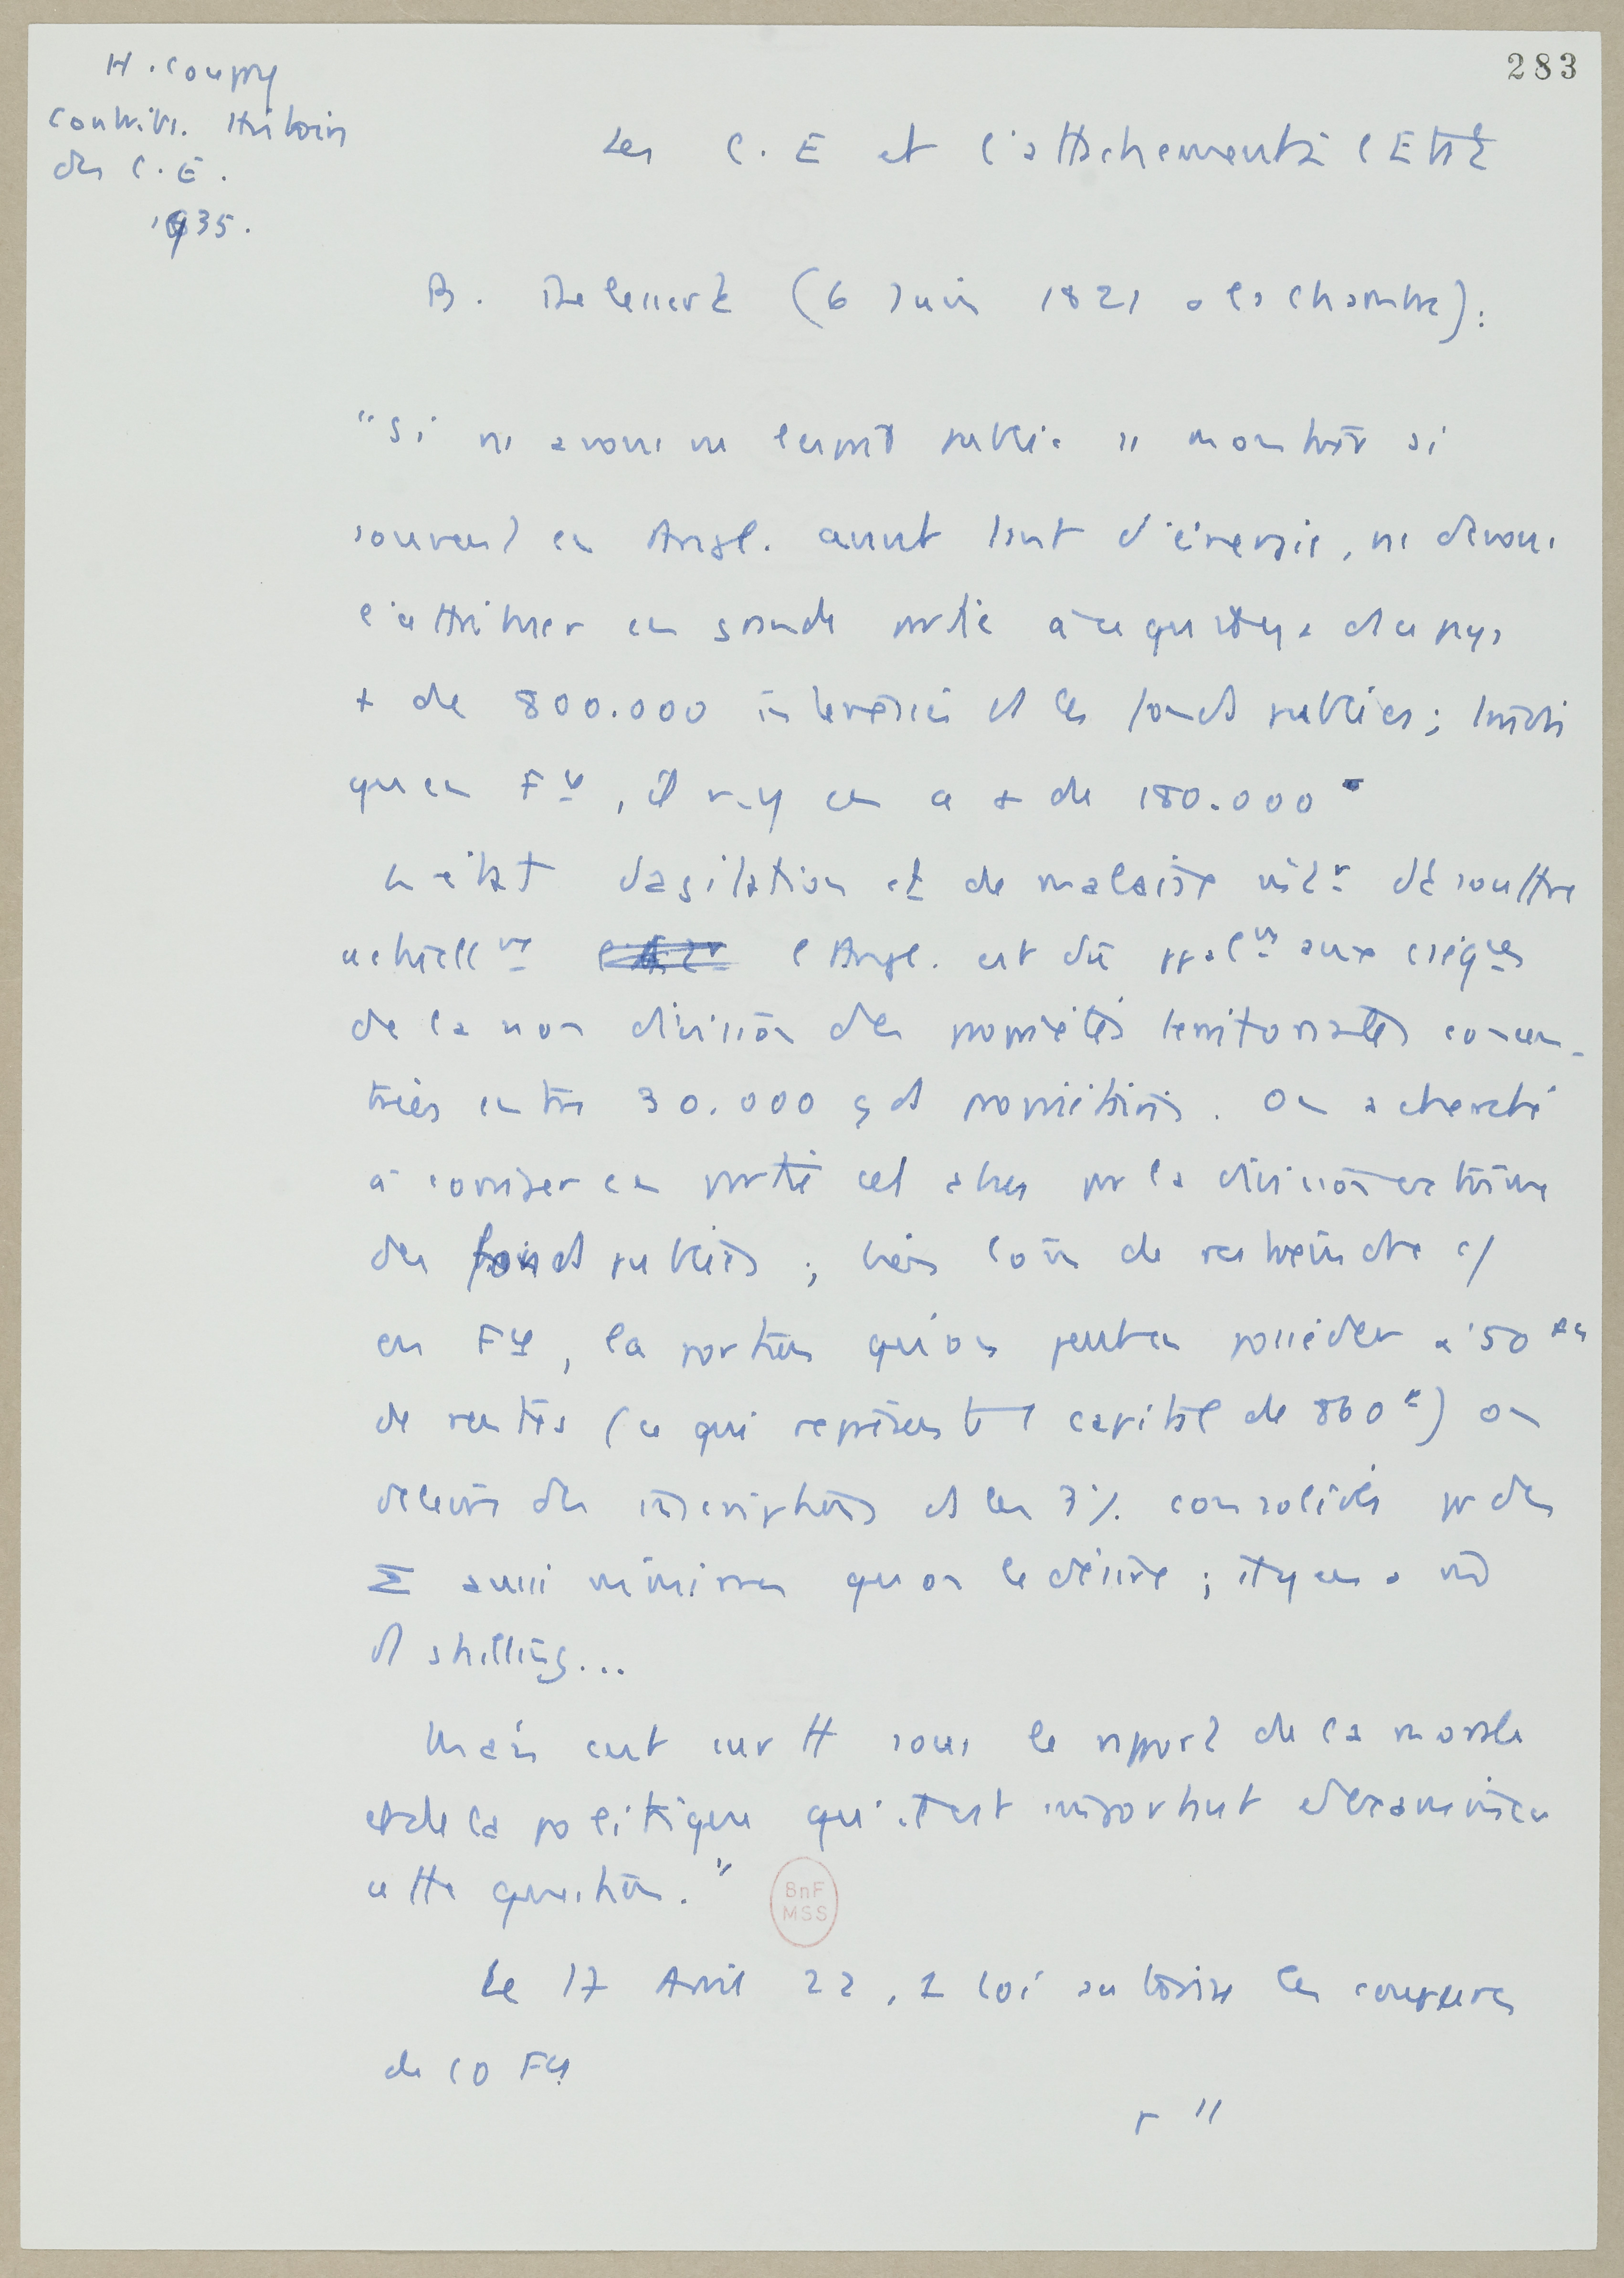 283
H. Coupry
Contrib. Histoire
des C.E.
1935.
Les C.E et l'attachement à l'Etat
B. Delessert (6 Juin 1821 a la chambre) :
"Si ns avons vu l'esprit public se montrer si
souvent en Angl. avec tant d'énergie, ns devons
l'attribuer en grande partie à ce qu'il y a ds ce pays
+ de 800.000 intéressés ds les fonds publics ; tandis
qu'en Fce, il n'y en a + de 180.000
L'état d'agitation et de malaise
actuellmt l'Angl. est dû ppalmt aux cséqces
de la non division des propriétés territoriales concen-
trées entre 30.000 gds propriétaires. On a cherché
à corriger en partie cet abus pr la division extrême
des fonds publics ; bien loin de restreindre c/
en Fce, la portion qu'on peut en posséder à 50 Frs
de rentes (ce qui représente 1 capital de 860 F) on
délivre des inscriptions ds les 3% consolidés pr des
Σ aussi minimes qu'on le désire ; il y en a
d shilling...
Mais c'est surtt sous le rapport de la morale
et de la politique qu'il est important d'examiner
cette question."
Le 17 Avril 22, 1 loi autorise les coupures
de 10 Frs
r "
BnF
MSS